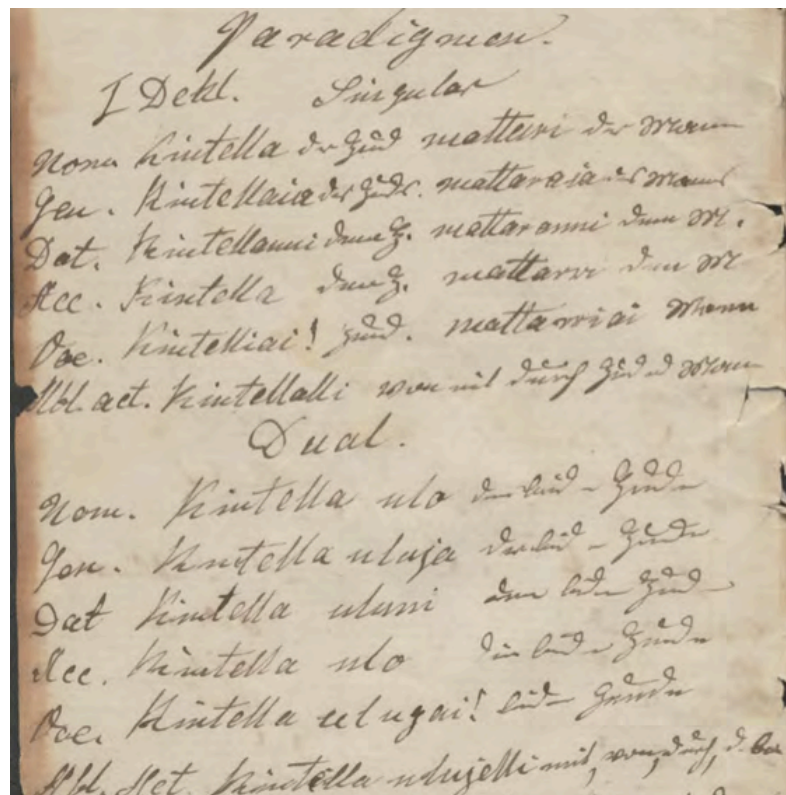 Paradigmen.
I Dekl. Singular
Nom. Kintella der Hund mattari der Mann
Gen. Kintellaia des Hunds. mattaraia des Manns
Dat. Kintellanni dem H. mattaranni dem M.
Acc. Kintella den H. mattarri den M
Voc. Kintelliai! Hund. mattarriai Mann
Abl. act. Kintellalli von mit durch Hund Mann
Dual.
Nom. Kintella ulo die beid - Hunde
Gen. Kintella uluja der beid - Hunde
Dat Kintella uluni den beiden Hund -
Acc. Kintella ulo die beiden Hunde
Voc. Kintella ulugai! beide Hunde
Abl. Act. Kintella ulujelli mit, von, durch, d.